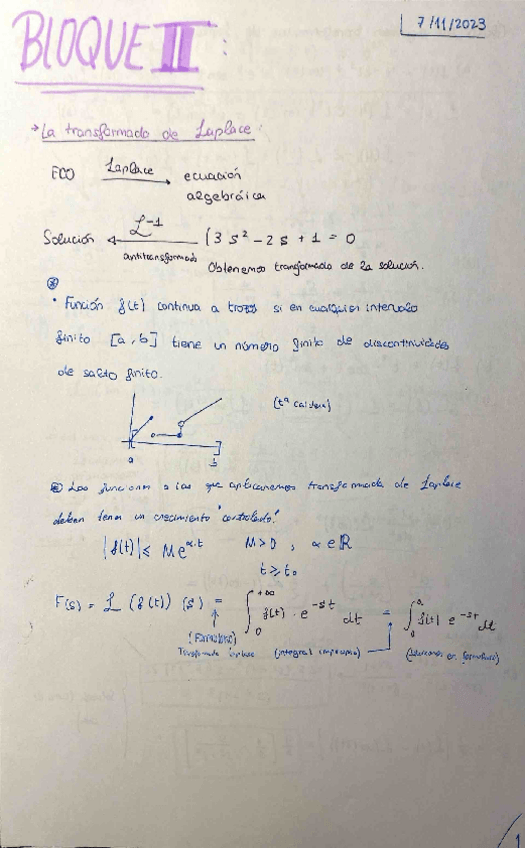 7/11/2023
BLOQUE II:
→ La transformada de Laplace:
EDO Laplace → ecuación
algebráica
Solución ← L⁻¹ (3s² - 2s + 1 = 0
antitransformada Obtenemos transformada de la solución.
• Función f(t) continua a trozos si en cualquier intervalo
finito [a, b] tiene un número finito de discontinuidades
de salto finito.
a b
Las funciones a las que aplicaremos transformada de Laplace
deben tener un crecimiento "controlado".
|f(t)| ≤ M e^(α·t) M > 0, α ∈ ℝ
t ≥ t₀
F(s) = L(f(t))(s) = ∫₀^(+∞) f(t) · e^(-st) dt = ∫₀ f(t) e^(-st) dt
(Formulario)
Transformada Laplace (integral impropia)
1